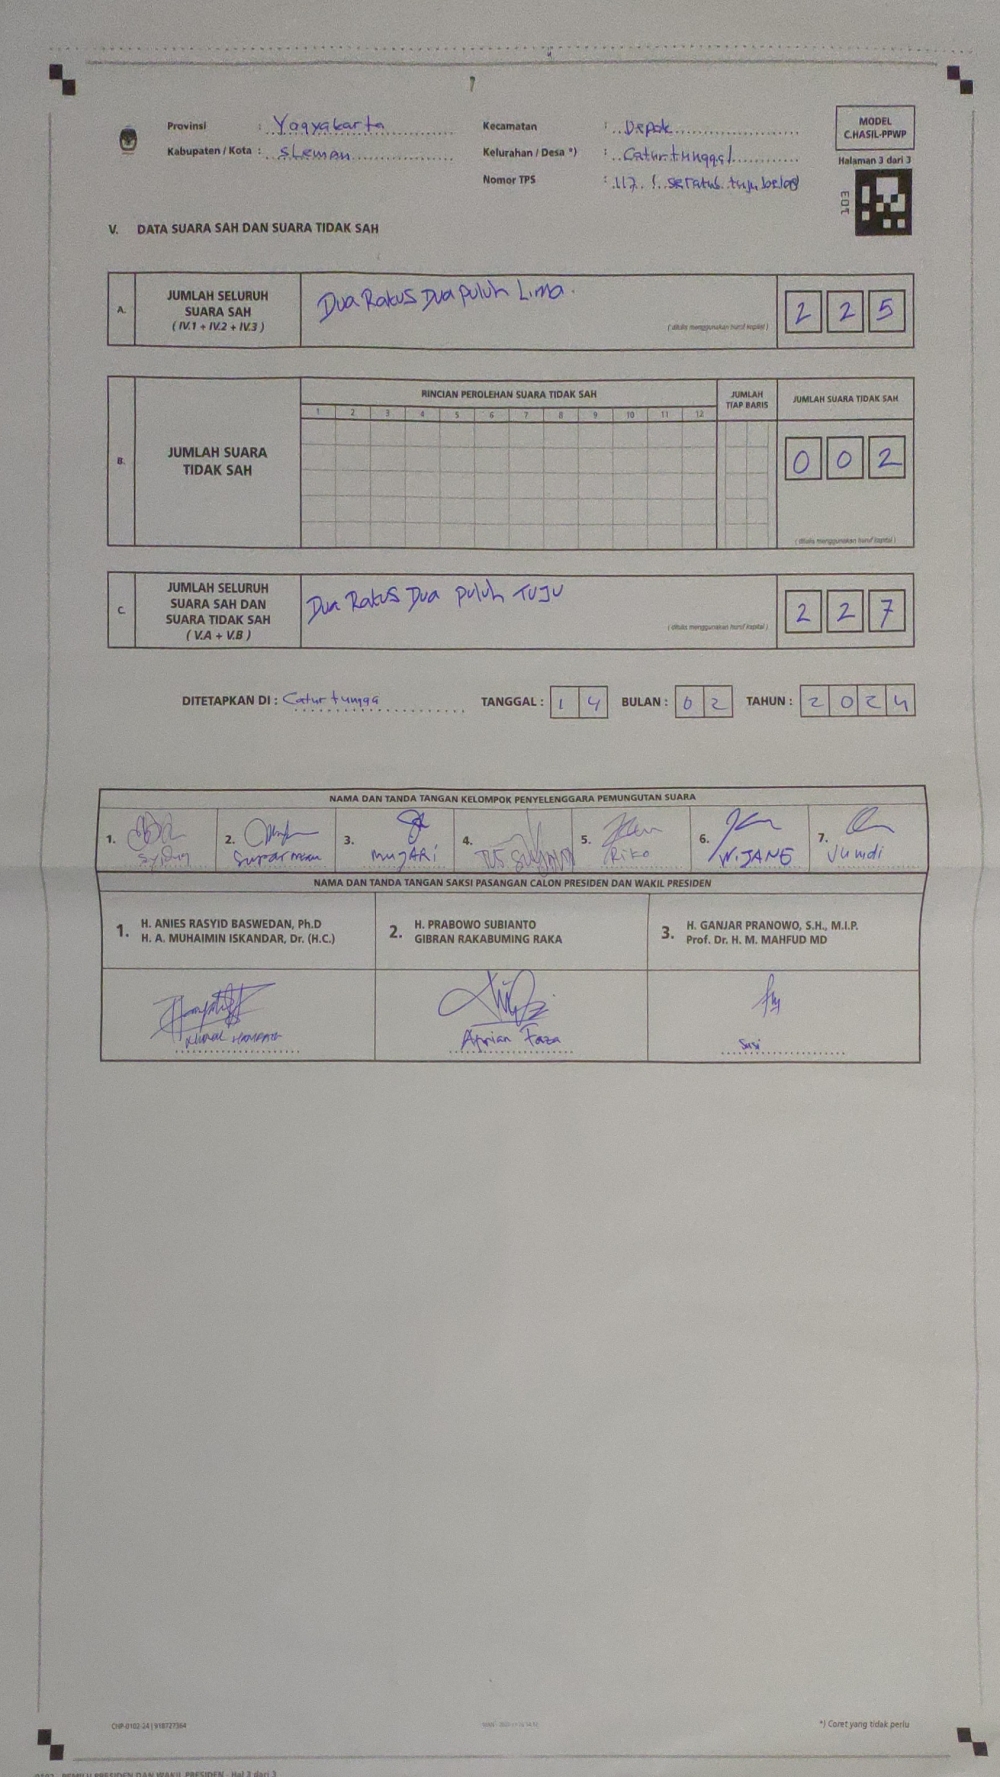 Provinsi : Yogyakarta
Kabupaten / Kota : SLEMAN
Kecamatan : Depok
Kelurahan / Desa *) : Caturtunggal
Nomor TPS : 117 ( seratus tuju belas
MODEL
C.HASIL-PPWP
Halaman 3 dari 3
V. DATA SUARA SAH DAN SUARA TIDAK SAH
A. JUMLAH SELURUH
SUARA SAH
( IV.1 + IV.2 + IV.3 )
Dua Ratus Dua Puluh Lima.
( ditulis menggunakan huruf kapital )
2 2 5
B. JUMLAH SUARA
TIDAK SAH
RINCIAN PEROLEHAN SUARA TIDAK SAH
1 2 3 4 5 6 7 8 9 10 11 12
JUMLAH
TIAP BARIS
JUMLAH SUARA TIDAK SAH
0 0 2
( ditulis menggunakan huruf kapital )
C. JUMLAH SELURUH
SUARA SAH DAN
SUARA TIDAK SAH
( V.A + V.B )
Dua Ratus Dua Puluh TUJU
( ditulis menggunakan huruf kapital )
2 2 7
DITETAPKAN DI : Caturtungga TANGGAL : 1 4 BULAN : 0 2 TAHUN : 2 0 2 4
NAMA DAN TANDA TANGAN KELOMPOK PENYELENGGARA PEMUNGUTAN SUARA
1. 2. 3. 4. 5. 6. 7.
Suparman MUJARI Riko W.JANE Jumdi
NAMA DAN TANDA TANGAN SAKSI PASANGAN CALON PRESIDEN DAN WAKIL PRESIDEN
1. H. ANIES RASYID BASWEDAN, Ph.D
H. A. MUHAIMIN ISKANDAR, Dr. (H.C.)
2. H. PRABOWO SUBIANTO
GIBRAN RAKABUMING RAKA
3. H. GANJAR PRANOWO, S.H., M.I.P.
Prof. Dr. H. M. MAHFUD MD
Aprian Faza
Susi
CHP-0102-24 | 918727364
*) Coret yang tidak perlu
PEMILU PRESIDEN DAN WAKIL PRESIDEN - Hal 3 dari 3